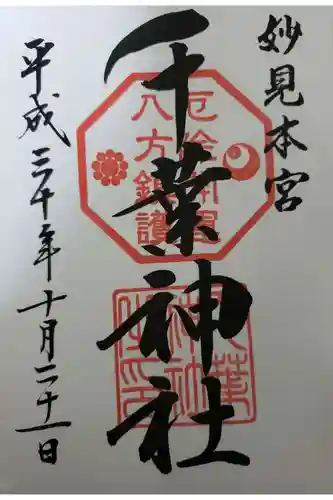 妙見本宮
千葉神社
平成三十年十月二十一日
厄除開運
八方鎮護